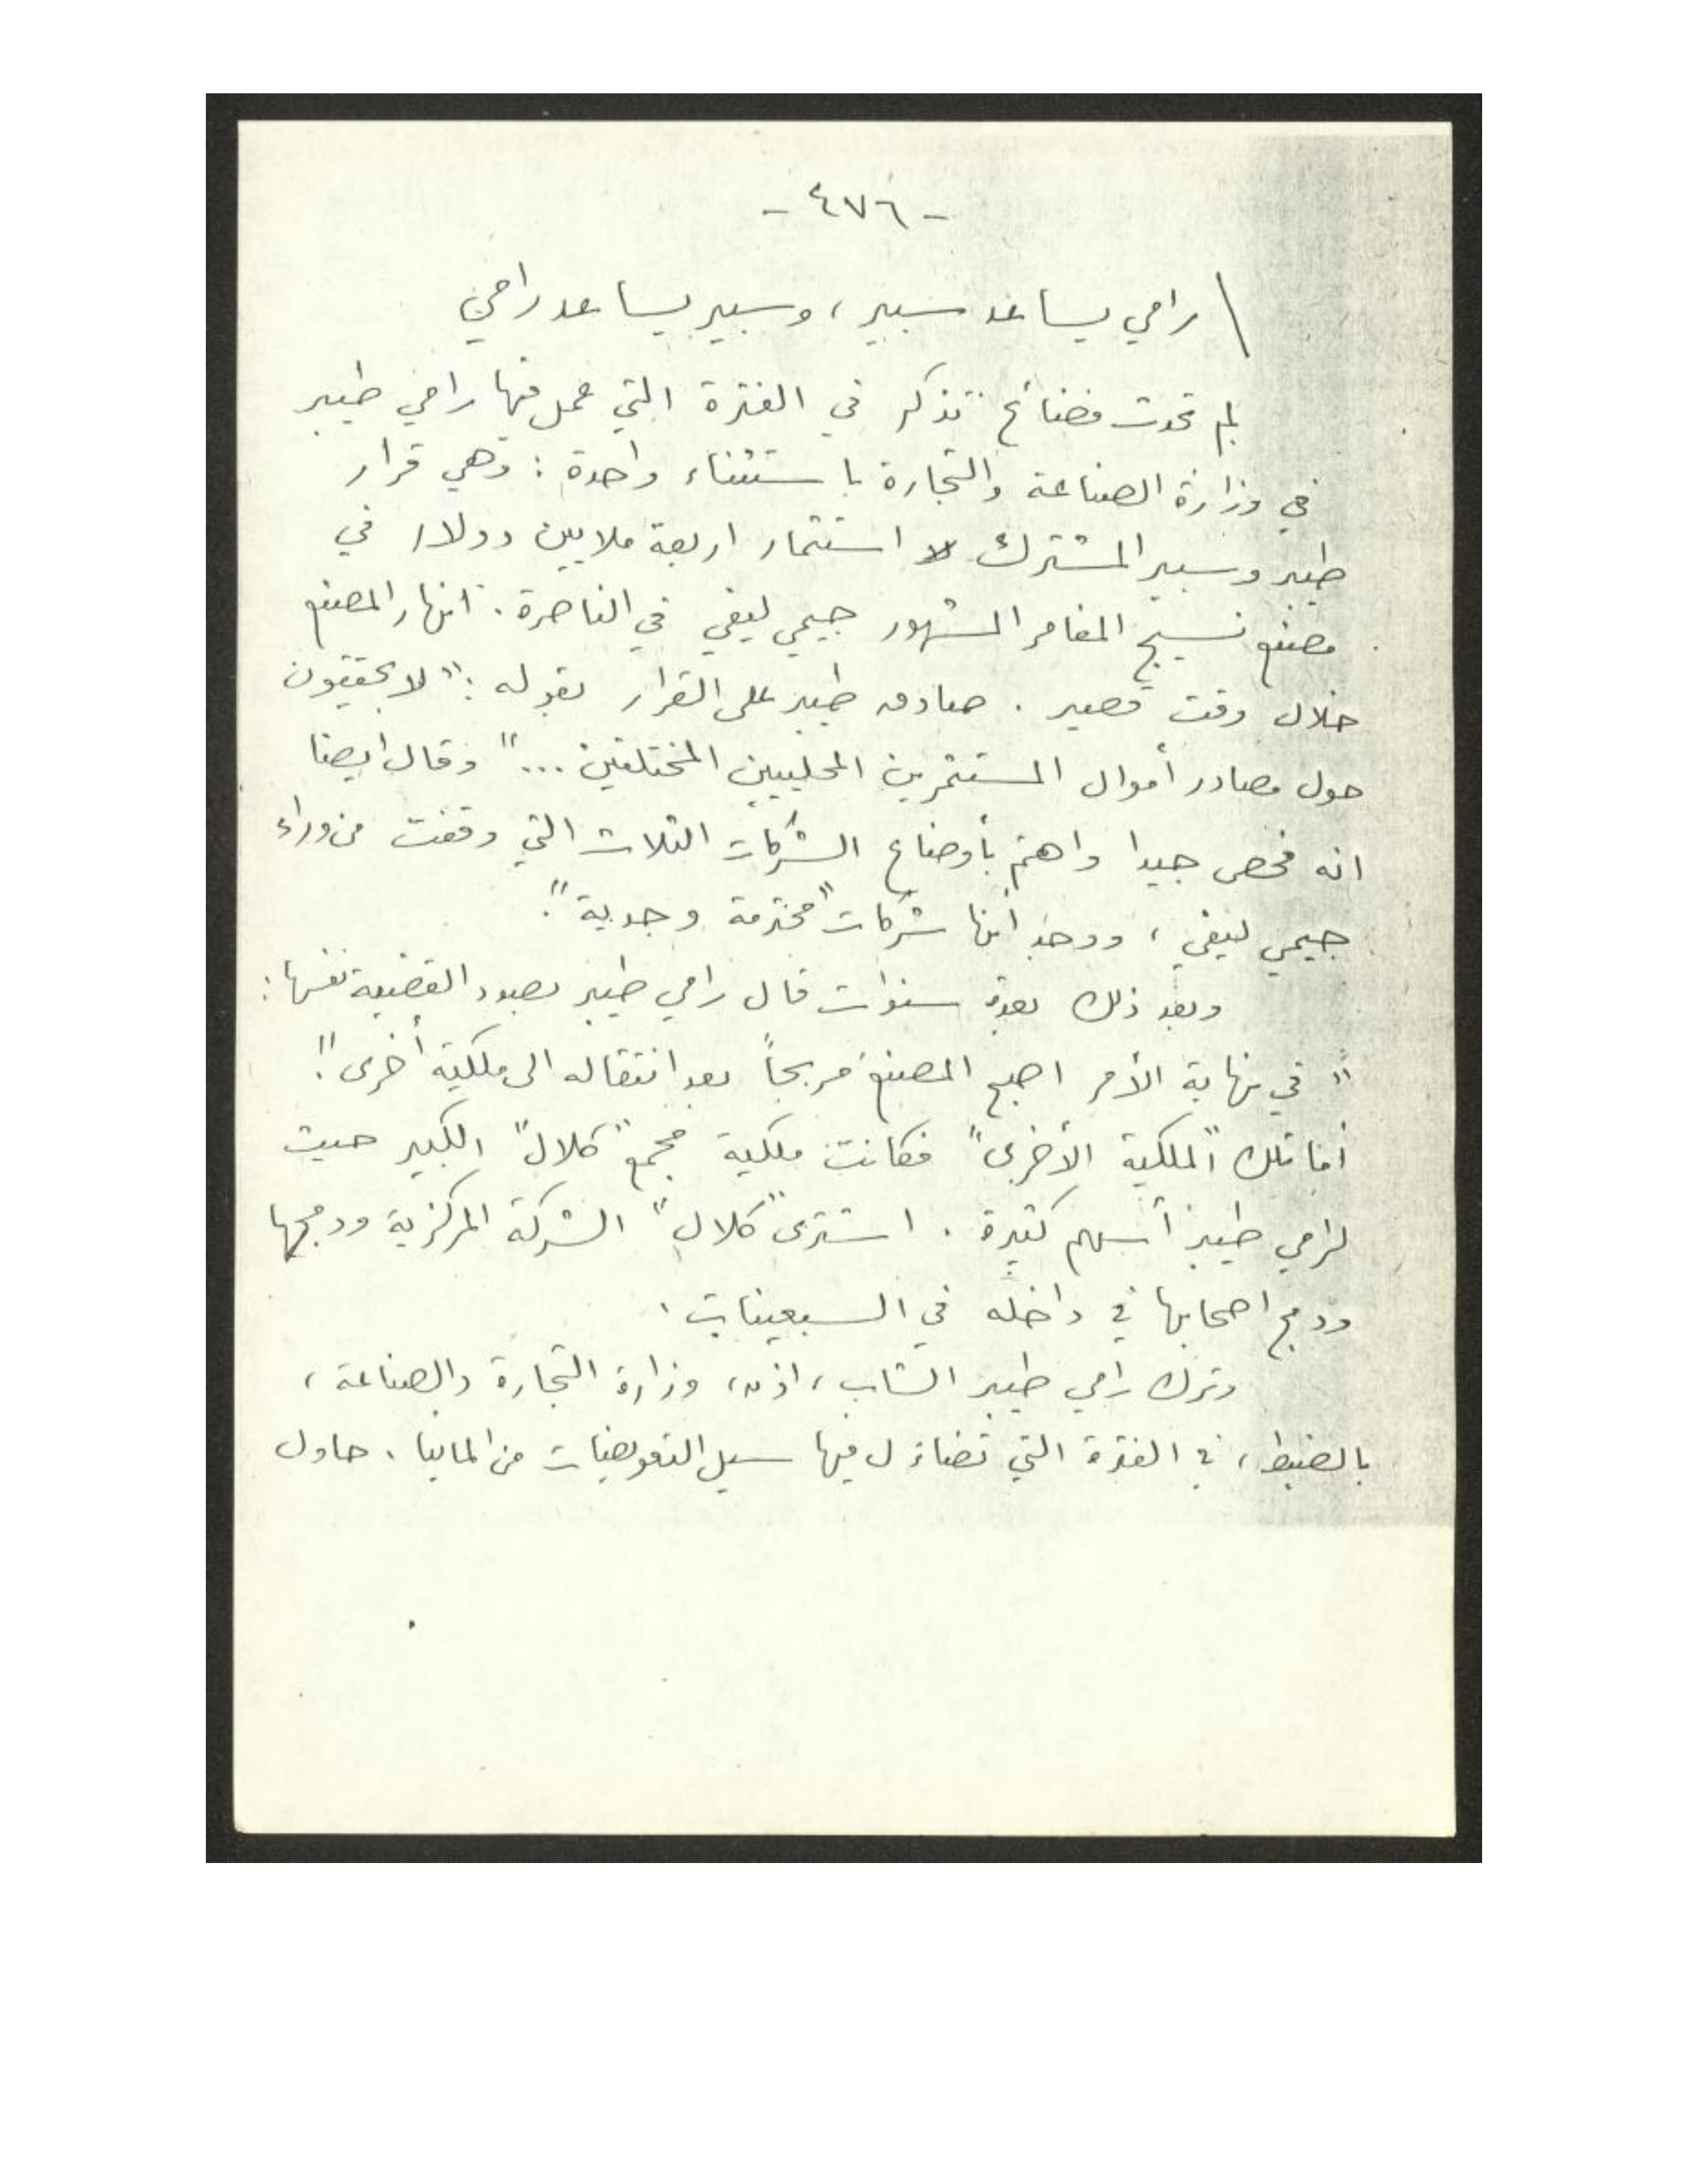 - ٤٧٦ -
رامي يساعد سبير، وسبير يساعد رامي
لم تحدث فضائح تذكر في الفترة التي عمل فيها رامي طيبر
في وزارة الصناعة والتجارة باستثناء واحدة : وهي قرار
طيبر وسبير المشترك لا استثمار اربعة ملايين دولار في
مصنع نسيج المغامر المشهور جيمي ليفي في الناصرة . انهار المصنع
خلال وقت قصير . صادق طيبر على القرار بقوله : "لا يحققون
حول مصادر أموال المستثمرين المحليين المختلفين ..." وقال ايضا
انه فحص جيدا واهتم بأوضاع الشركات الثلاث التي وقفت من وراء
جيمي ليفي ، ووجد أنها شركات "محترمة وجدية".
وبعد ذلك بعدة سنوات قال رامي طيبر بصدد القضية نفسها :
" في نهاية الأمر اصبح المصنع مربحاً بعد انتقاله الى ملكية أخرى".
أما تلك "الملكية الأخرى" فكانت ملكية مجمع "كلال" الكبير حيث
لرامي طيبر أسهم كثيرة . اشترى "كلال" الشركة المركزية ودمجها
ودمج اصحابها في داخله في السبعينات .
وترك رامي طيبر الشاب ، اذن ، وزارة التجارة والصناعة ،
بالضبط ، في الفترة التي تضاءل فيها سيل التعويضات من المانيا . حاول